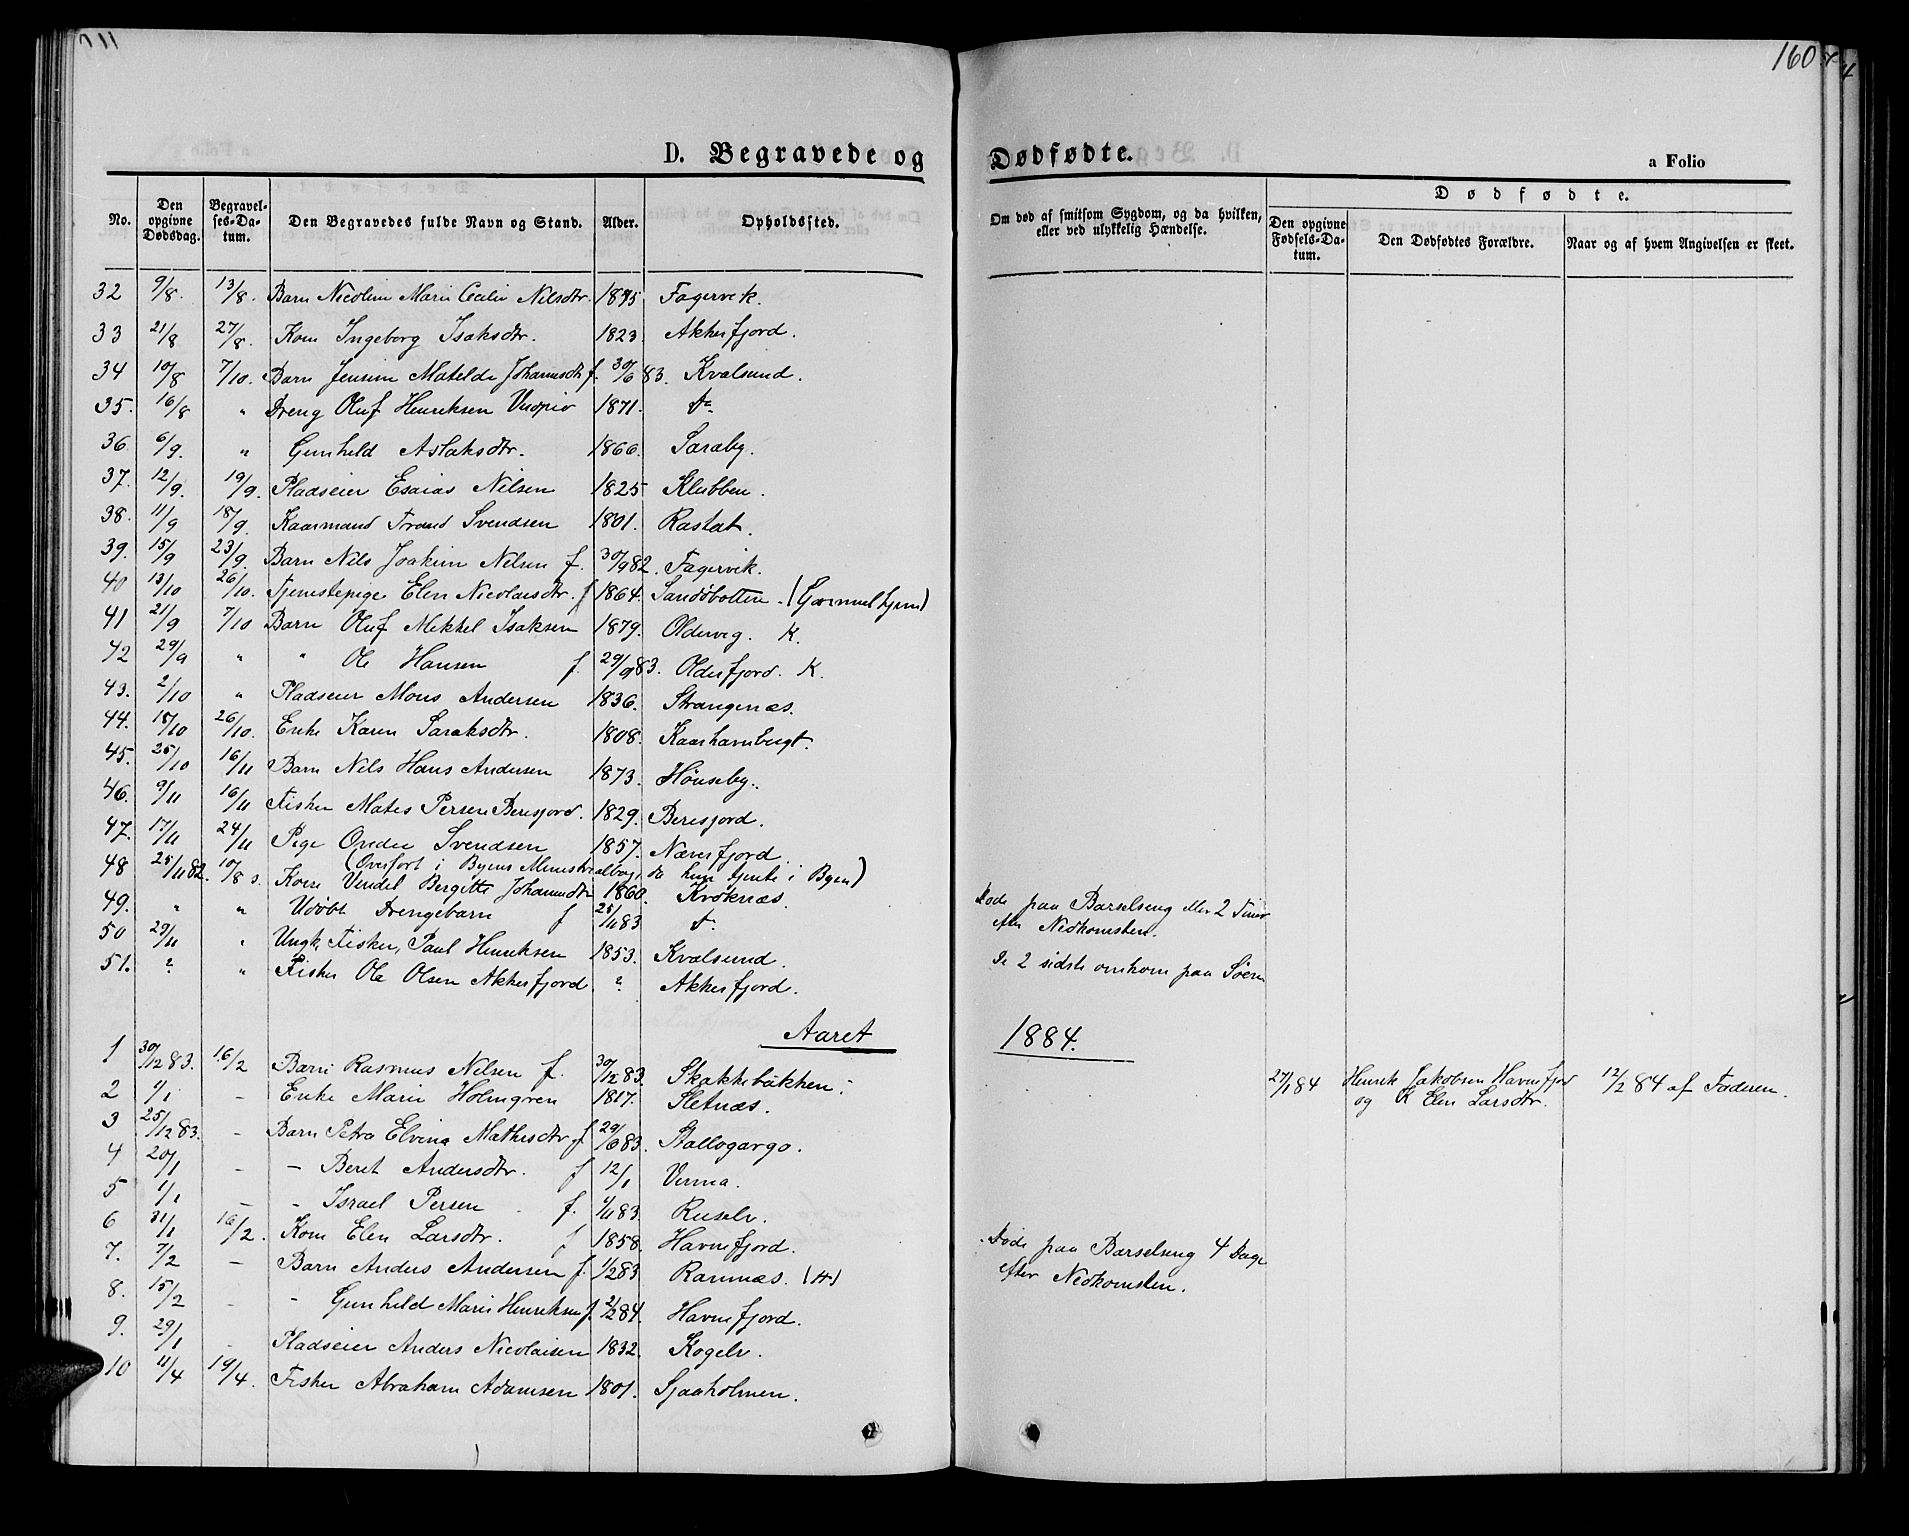 160
D. Begravede og Dødfødte.
a Folio
No. Den opgivne Dødsdag. Begravelses-Datum. Den Begravedes fulde Navn og Stand. Alder. Opholdssted. Om død af smitsom Sygdom, og da hvilken, eller ved ulykkelig Hændelse. Dødfødte. Den opgivne Fødsels-Datum. Den Dødfødtes Forældre. Naar og af hvem Angivelsen er skeet.
32 9/8. 13/8. Barn Nicoline Marie Cecilie Nilsdtr. 1875 Fagervik.
33 21/8 27/8. Kone Ingeborg Isaksdtr. 1823. Akkerfjord.
34 10/8 7/10. Barn Jensine Matelde Johannsdtr f. 30/6 83. Kvalsund.
35. 16/8 " Dreng Oluf Henriksen 1871. Do
36 6/9. " Gunhild Aslaksdtr. 1866. Saraby.
37. 12/9. 19/9. Pladseier Esaias Nilsen 1825 Klubben.
38. 11/9 18/9. Kaarmand Trond Svendsen 1801. Rastat.
39. 15/9 23/9. Barn Nils Joakim Nilsen f. 30/9 82. Fagervik.
40 13/10 26/10. Tjenestepige Elen Nicolaisdtr. f 1864. Sandøbotten. (Gammelhjem)
41 21/9 7/10 Barn Oluf Mekkel Isaksen 1879. Oldervig. K.
42 29/9 " " Ole Hansen f. 29/9 83. Olderfjord. K.
43. 2/10 " Pladseier Mons Andersen 1836. Strangenæs.
44. 15/10 26/10. Enke Karen Saraksdtr. 1808. Kaarhavnbugt.
45. 25/10 16/11 Barn Nils Hans Andersen 1873. Hønseby.
46. 9/11 16/11 Fisker Mates Persen Beresjord. 1829. Beresjord.
47. 17/11 24/11 Pige Ovedie Svendsen 1857. Næverfjord.
(Overført i Byens Ministerialbog, da hun tjente i Byen)
48 25/11 82. 10/8 Kone Vendel Bergitte Johannsdtr 1860. Kroknæs. Døde paa Barselseng eller 2 Timer efter Nedkomsten.
49. " " Udøbt Drengebarn f 25/11 83 Do
50 29/11 " Ungk. Fisker, Paul Henriksen 1853. Kvalsund. De 2 sidste omkom paa Søen
51. ? " Fisker Ole Olsen Akkerfjord. ? Akkerfjord.
Aaret 1884.
1 30/12 83. 16/2 Barn Rasmus Nilsen f. 30/12 83. Skakkebakken. 27/1 84 Henrik Jakobsen Havnefjord og K Elen Larsdtr. 12/2 84 af Faderen.
2 4/1 - Enke Marie Holmgren 1817. Sletnæs.
3 25/12 83. - Barn Petra Elvina Mathisdtr f 29/6 83. Stallogargo.
4 20/1 - - Beret Andersdtr. f 12/1 Verma.
5 1/1 - - Israel Persen f. 4/11 83. Ruselv.
6 31/1 16/2. Kone Elen Larsdtr. f 1858. Havnefjord. Døde paa Barselseng 4 Dage efter Nedkomsten.
7. 7/2 - Barn Anders Andersen f. 1/2 83 Ramnæs. (H)
8. 15/2 - - Gunhild Marie Henriksen f. 2/2 84. Havnefjord.
9. 29/1 - Pladseier Anders Nicolaisen 1832. Kogelv.
10 11/4 19/4. Fisker Abraham Adamsen 1801. Sjaaholmen.